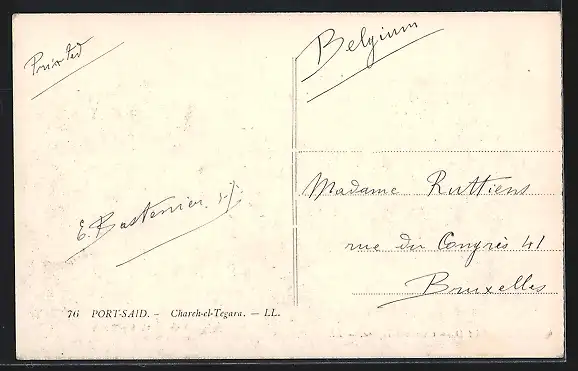 Printed
Belgium
Madame Ruttiens
E. Bastenier
rue du Congrès 41
Bruxelles
76 PORT-SAID. – Chareh-el-Tegara. — LL.